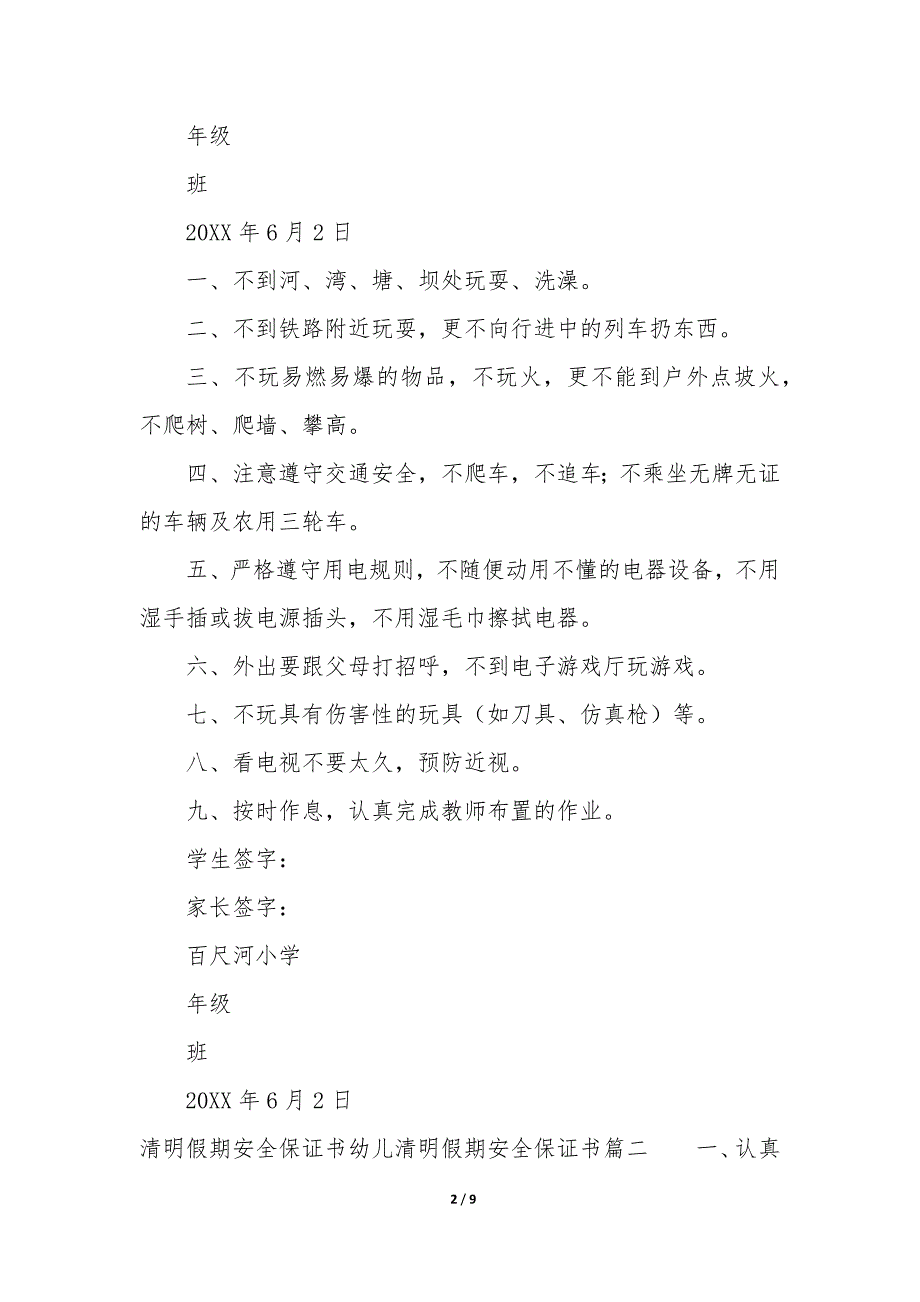 年级
班
20XX 年 6 月 2 日
一、不到河、湾、塘、坝处玩耍、洗澡。
二、不到铁路附近玩耍，更不向行进中的列车扔东西。
三、不玩易燃易爆的物品，不玩火，更不能到户外点坡火，
不爬树、爬墙、攀高。
四、注意遵守交通安全，不爬车，不追车；不乘坐无牌无证
的车辆及农用三轮车。
五、严格遵守用电规则，不随便动用不懂的电器设备，不用
湿手插或拔电源插头，不用湿毛巾擦拭电器。
六、外出要跟父母打招呼，不到电子游戏厅玩游戏。
七、不玩具有伤害性的玩具（如刀具、仿真枪）等。
八、看电视不要太久，预防近视。
九、按时作息，认真完成教师布置的作业。
学生签字：
家长签字：
百尺河小学
年级
班
20XX 年 6 月 2 日
清明假期安全保证书幼儿清明假期安全保证书篇二 一、认真
2 / 9